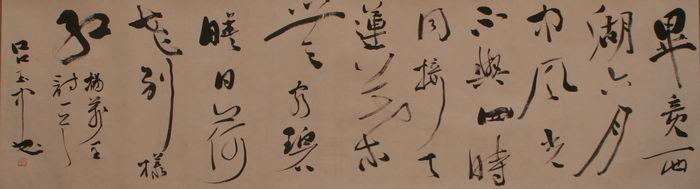 畢竟西
湖六月
中風光
不與四時
同接天
蓮葉
無窮碧
暎日荷
花別樣
紅
楊萬里
詩一首